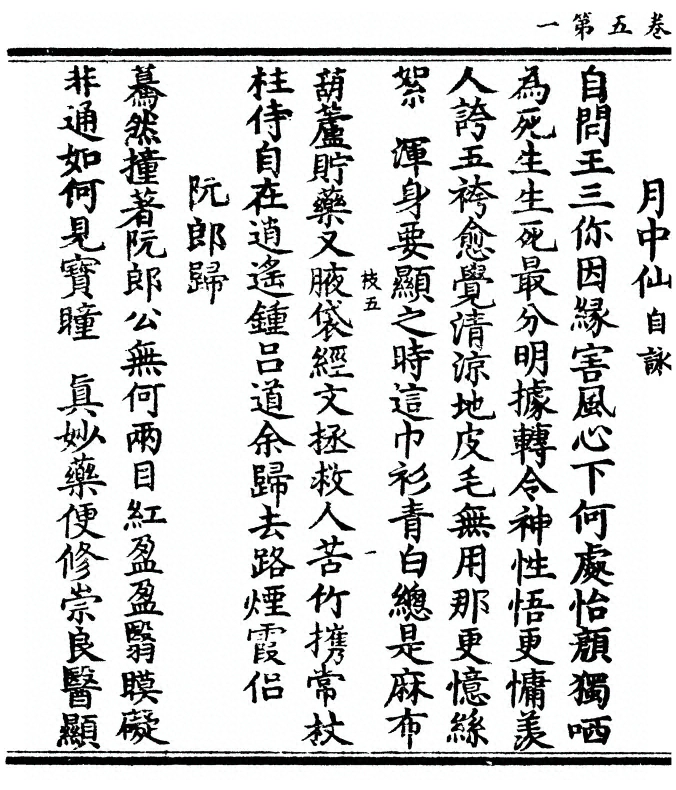 卷五第一
月中仙 自詠
自問王三你因緣害風心下何處怡顏獨哂
為死生生死最分明據轉令神性悟更慵羨
人誇五袴愈覺清涼地皮毛無用那更憶絲
絮 渾身要顯之時這巾衫青白總是麻布
葫蘆貯藥又腋袋經文拯救人苦竹攜常杖
枝五 一
柱侍自在逍遙鍾呂道余歸去路煙霞侶
阮郎歸
驀然撞著阮郎公無何兩目紅盈盈翳膜礙
非通如何見寶瞳 真妙藥便修崇良醫顯